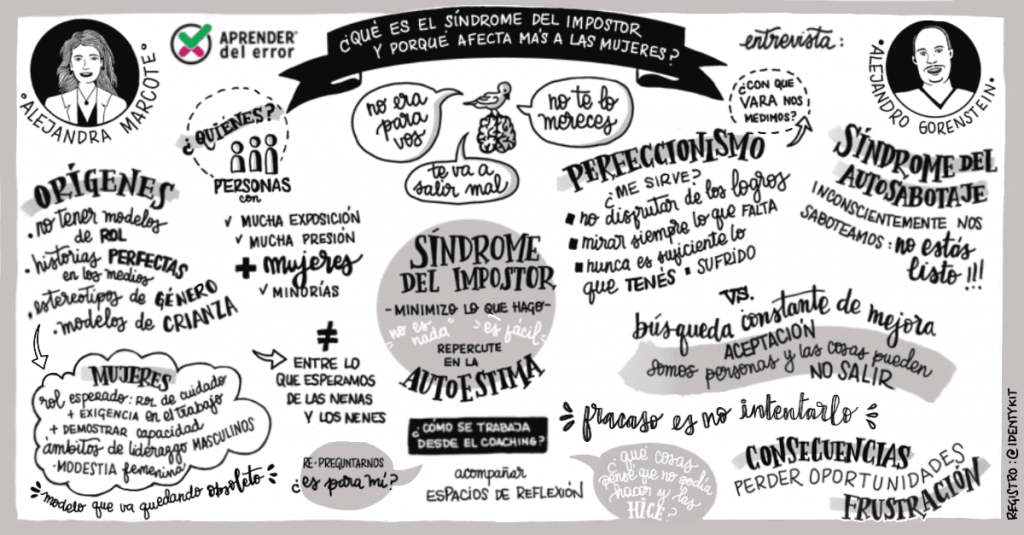 ¿QUÉ ES EL SÍNDROME DEL IMPOSTOR
Y PORQUÉ AFECTA MÁS A LAS MUJERES?
APRENDER®
del error
entrevista:
•ALEJANDRA MARCOTE•
•ALEJANDRO GORENSTEIN•
¿QUIENES?
PERSONAS
con
✓ MUCHA EXPOSICIÓN
✓ MUCHA PRESIÓN
+ mujeres
✓ MINORÍAS
≠
ENTRE LO
QUE ESPERAMOS
DE LAS NENAS
Y LOS NENES
ORÍGENES
• no tener modelos
de ROL
• historias PERFECTAS
en los medios
• estereotipos de GÉNERO
• modelos de CRIANZA
MUJERES
rol esperado: rol de cuidado
+ EXIGENCIA en el trabajo
+ DEMOSTRAR capacidad
ámbitos de liderazgo MASCULINOS
• MODESTIA femenina
modelo que va quedando obsoleto
no era
para
vos
no te lo
mereces
te va a
salir mal
SÍNDROME
DEL IMPOSTOR
- MINIMIZO LO QUE HAGO -
"no es
nada"
"es fácil"
REPERCUTE
EN LA
AUTOESTIMA
¿CÓMO SE TRABAJA
DESDE EL COACHING?
RE-PREGUNTARNOS
¿es para mí?
acompañar
ESPACIOS DE REFLEXIÓN
¿qué cosas
pensé que no podía
hacer y las
HICE?
¿CON QUE
VARA NOS
MEDIMOS?
PERFECCIONISMO
¿ME SIRVE?
▪ no disfrutar de los logros
▪ mirar siempre lo que FALTA
▪ nunca es suficiente lo
que TENÉS ▪ SUFRIDO
SÍNDROME DEL
AUTOSABOTAJE
INCONSCIENTEMENTE NOS
SABOTEAMOS: no estás
listo!!!
VS.
búsqueda constante de mejora
ACEPTACIÓN
somos personas y las cosas pueden
NO SALIR
fracaso es no intentarlo
CONSECUENCIAS
PERDER OPORTUNIDADES
FRUSTRACIÓN
REGISTRO: @IDENTYKIT